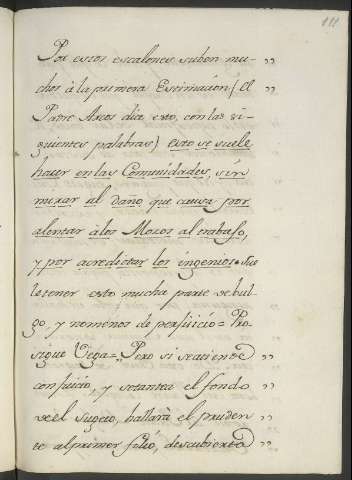 111
Por estos escalones suben mu- "
chos à la primera Estimacion (el "
Padre Arcos dia esto, con las si-
guientes palabras) esto se suele
hacer en las Comunidades, sin
mirar al daño que causa por
alentar à los Mozos al trabajo,
y por acreditar los ingenios. Sue
le tener esto mucha parte de bul-
go, y no menos de perjuicio = Pro-
sigue Vega = Pero si se atiende "
con juicio, y se tantea el fondo "
de el sugeto, hallarà el pruden "
te al primer folio, descubierto "